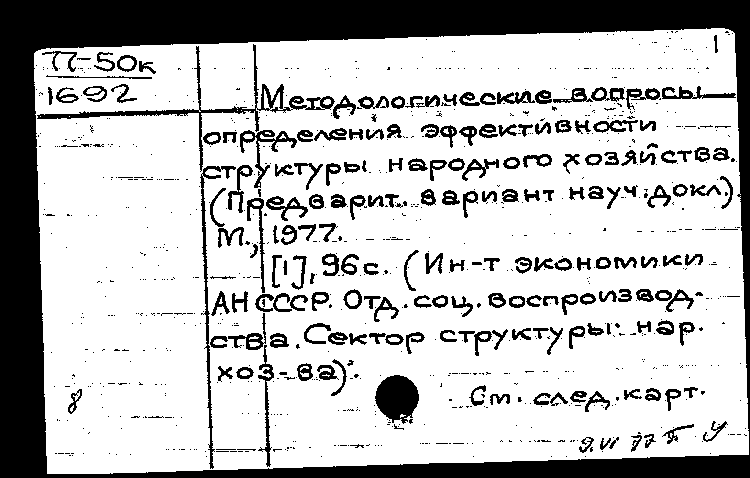 П-50к 1
1692
Методологические вопросы
определения эффективности
структуры народного хозяйства.
(Предварит. вариант науч. докл.).
М., 1977.
[1], 96 с. (Ин-т экономики
АН СССР. Отд. соц. воспроизвод-
ства. Сектор структуры нар.
хоз-ва).
8 См. след. карт.
9.VI 77